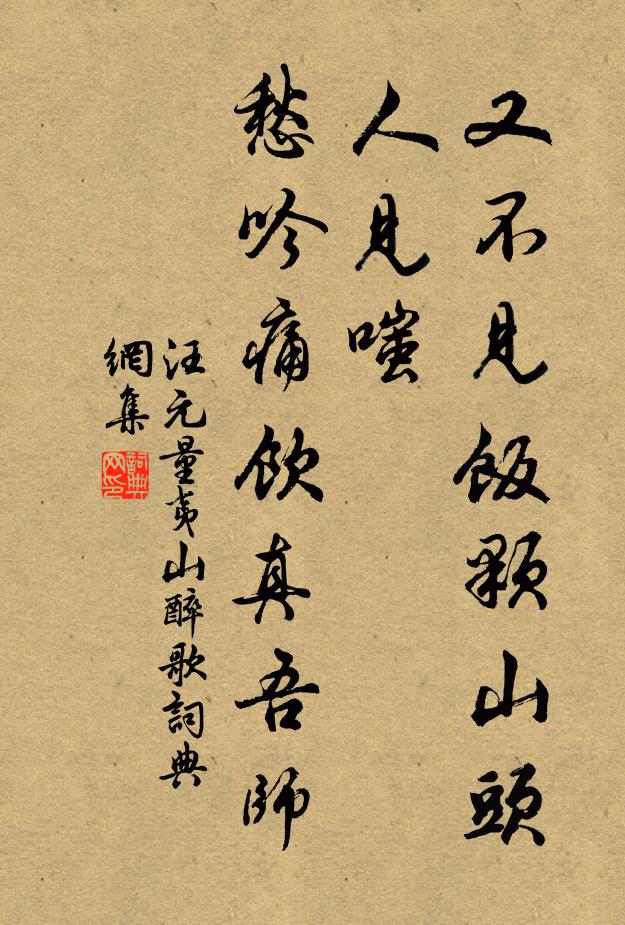 又不見飯顆山頭
人見嗤
愁吟痛飲真吾師
汪元量夷山醉歌詞典
網集
詞典
网印